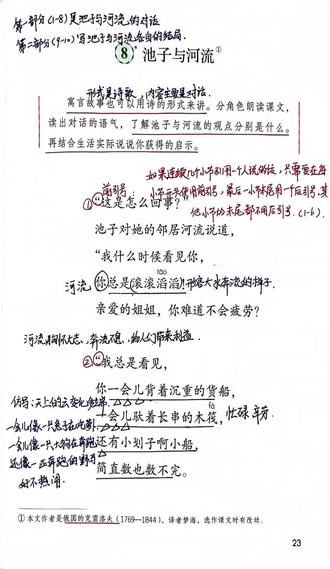 第一部分(1-8)写池子与河流的对话
第二部分(9-10)写池子与河流各自的结局.
8* 池子与河流①
形式是诗歌,内容主要是对话.
寓言故事也可以用诗的形式来讲。分角色朗读课文,
读出对话的语气,了解池子与河流的观点分别是什么。
再结合生活实际说说你获得的启示。
如果连续几个小节引用一个人说的话,只需要在每
前引号
小节开头使用前引号,最后一小节末尾用一个后引号,其
他小节的末尾都不用后引号.(1-6).
①“这是怎么回事?
池子对她的邻居河流说道,
“我什么时候看见你,
河流
你总是滚滚滔滔!
形容大水奔流的样子.
亲爱的姐姐,你难道不会疲劳?
河流胸怀大志、奔流不息,给人们带来利益
②“我总是看见,
你一会儿背着沉重的货船,
仿写:天上的云变化多端
一会儿驮着长串的木筏,
忙碌 辛劳.
一会儿像一只兔子在吃草
一会儿像一只大狗在奔跑
还有小划子啊小船,
还像一匹奔跑的野马
简直数也数不完。
好不热闹.
① 本文作者是俄国的克雷洛夫(1769—1844),译者梦海,选作课文时有改动。
23